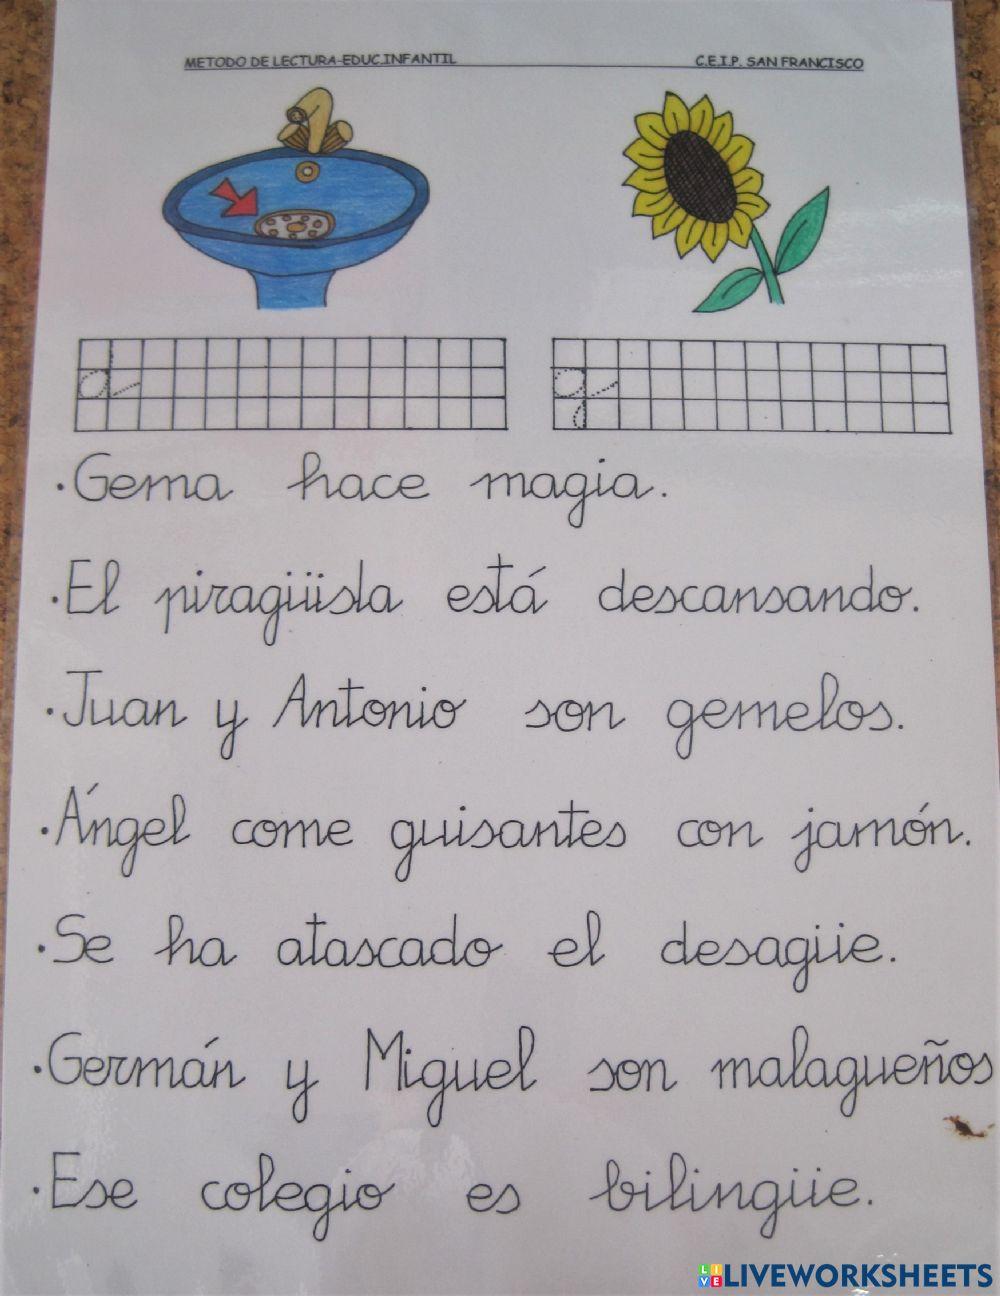 METODO DE LECTURA-EDUC.INFANTIL C.E.I.P. SAN FRANCISCO
d g
.Gema hace magia.
.El piragüista está descansando.
.Juan y Antonio son gemelos.
.Ángel come guisantes con jamón.
.Se ha atascado el desagüe.
.Germán y Miguel son malagueños
.Ese colegio es bilingüe.
LIVEWORKSHEETS